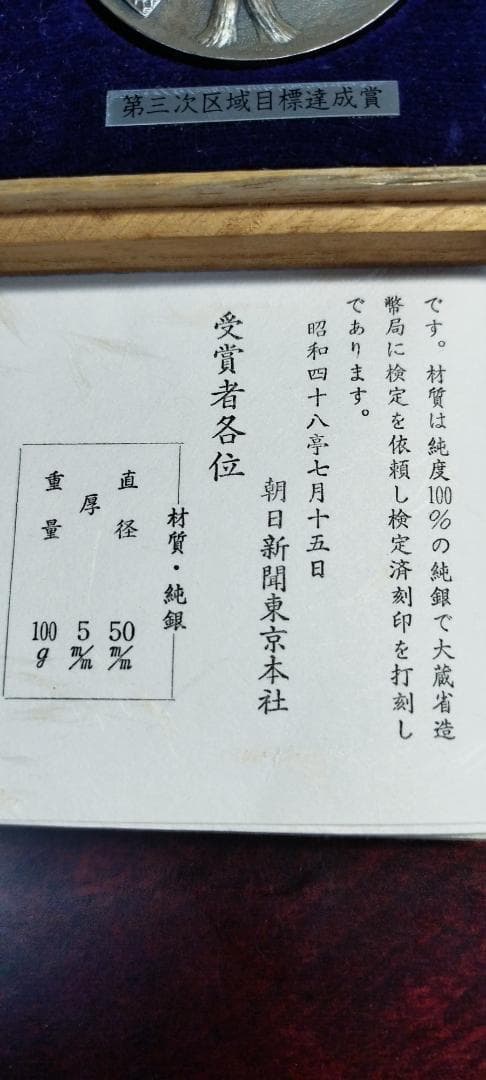 第三次区域目標達成賞
です。材質は純度100%の純銀で大蔵省造
幣局に検定を依頼し検定済刻印を打刻し
であります。
昭和四十八亭七月十五日
朝日新聞東京本社
受賞者各位
材質・純銀
直径 50m/m
厚 5m/m
重量 100g